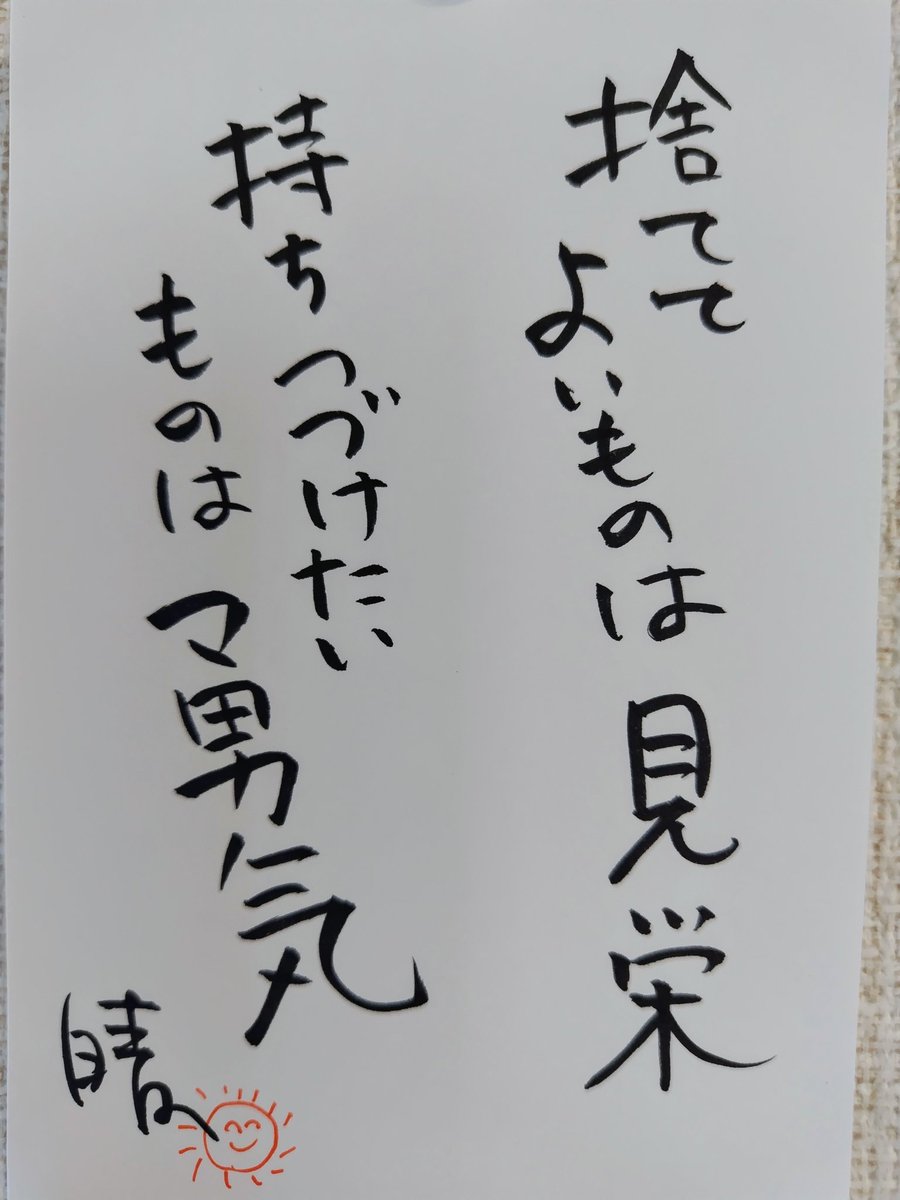 捨てて
よいものは見栄
持ちつづけたい
ものは勇気
晴